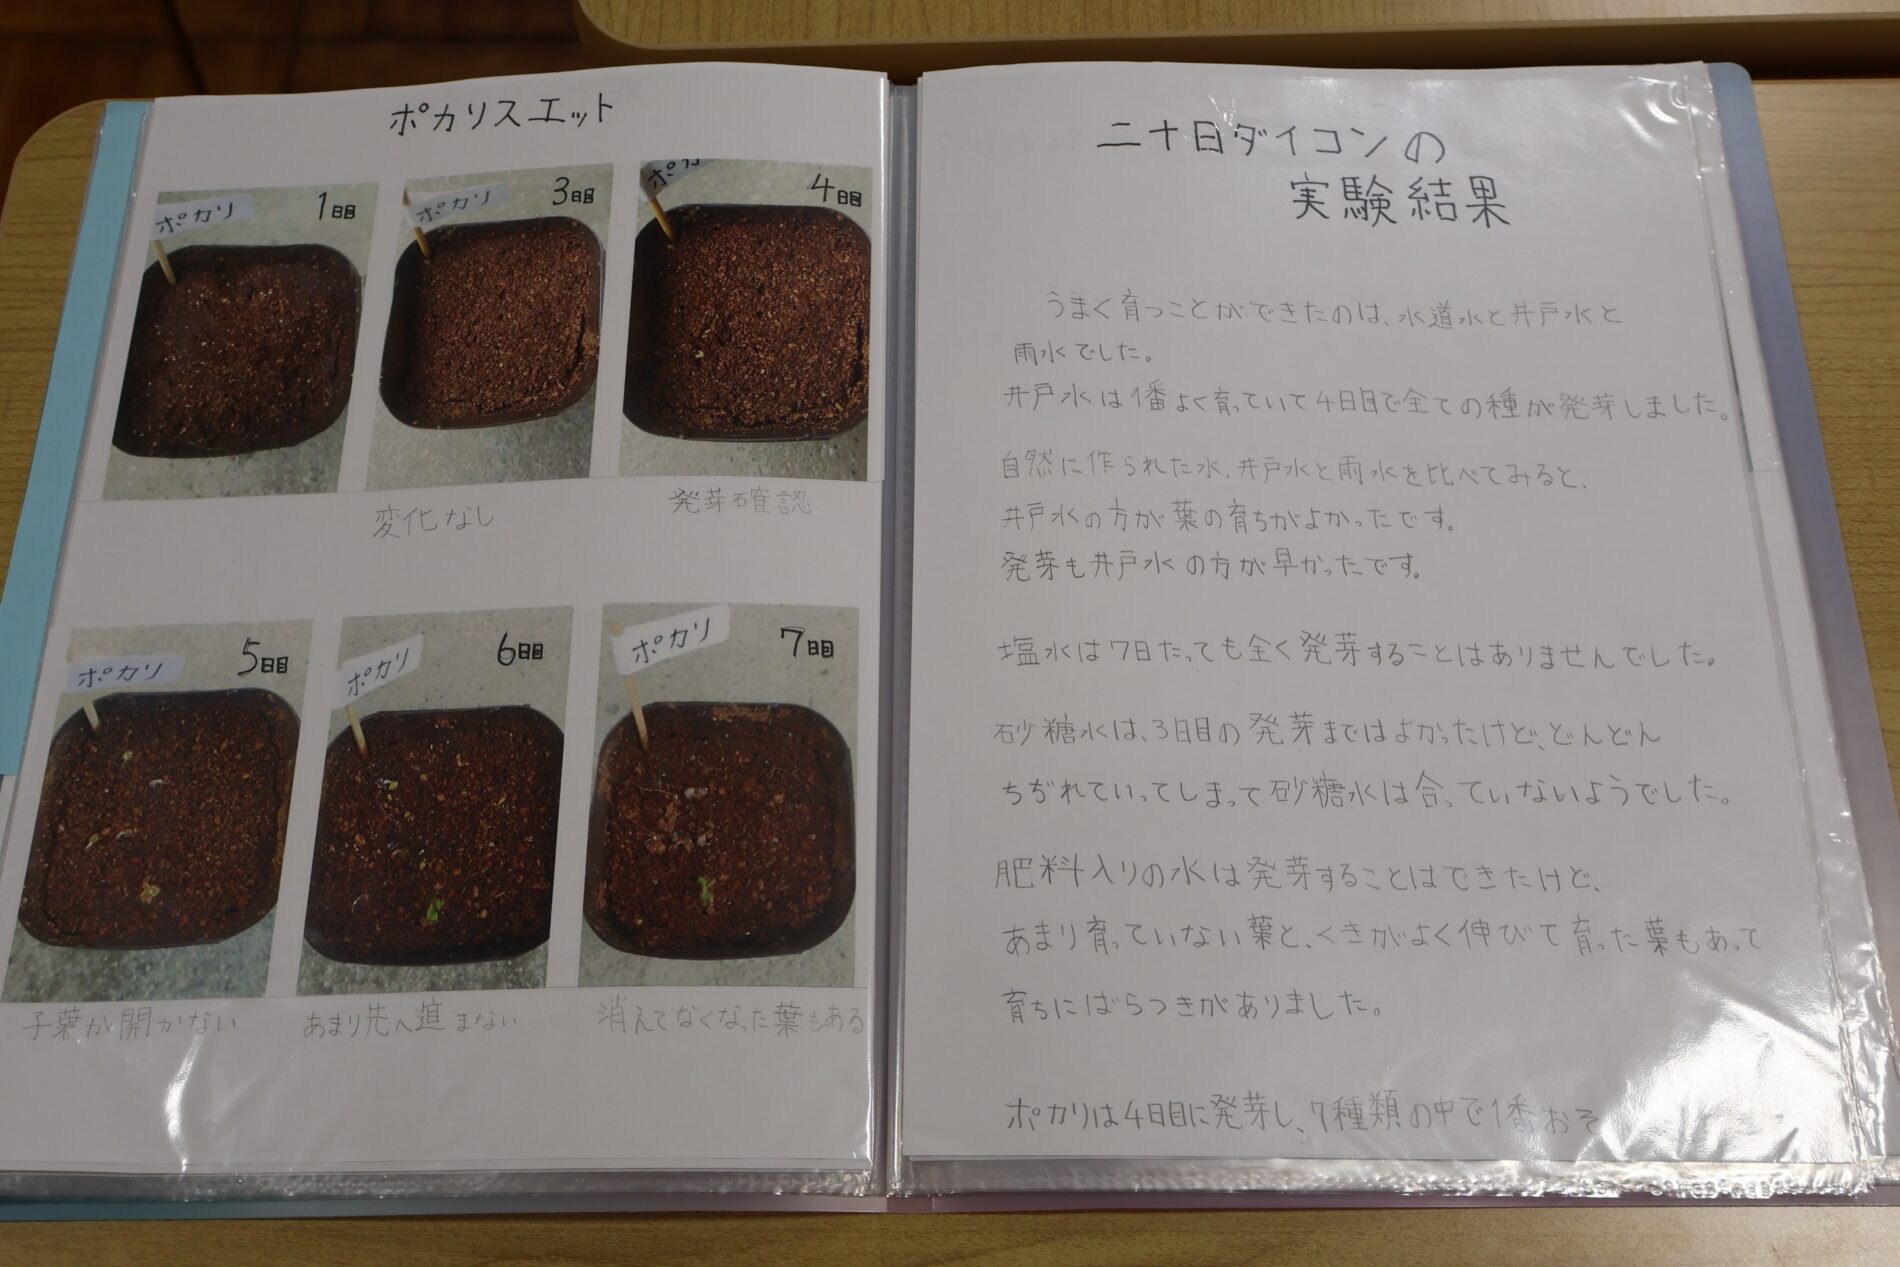 ポカリスエット
ポカリ 1日目
ポカリ 3日目
ポカ 4日目
変化なし
発芽確認
ポカリ 5日目
ポカリ 6日目
ポカリ 7日目
子葉が開かない
あまり先へ進まない
消えてなくなった葉もある
二十日ダイコンの
実験結果
うまく育つことができたのは、水道水と井戸水と
雨水でした。
井戸水は1番よく育っていて4日目で全ての種が発芽しました。
自然に作られた水、井戸水と雨水を比べてみると、
井戸水の方が葉の育ちがよかったです。
発芽も井戸水の方が早かったです。
塩水は7日たっても全く発芽することはありませんでした。
砂糖水は、3日目の発芽まではよかったけど、どんどん
ちぢれていってしまって砂糖水は合っていないようでした。
肥料入りの水は発芽することはできたけど、
あまり育っていない葉と、くきがよく伸びて育った葉もあって
育ちにばらつきがありました。
ポカリは4日目に発芽し、7種類の中で1番おそ